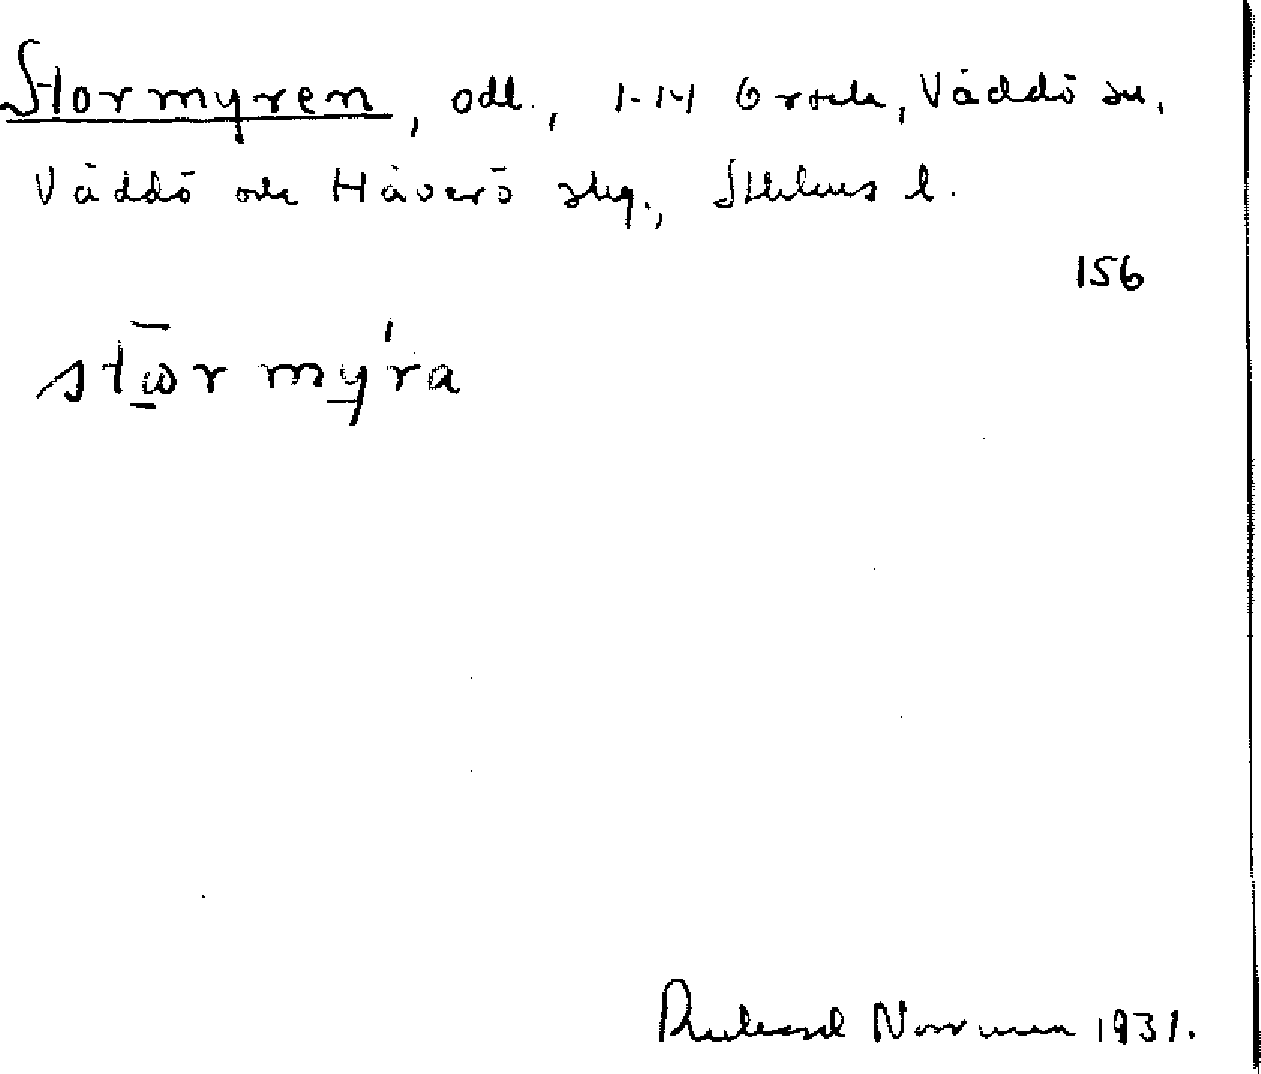 Stormyren, odl., 1-14 Väddö sn,
Väddö och Häverö skg., Sthlms l.
156
stωr mýra
Norrman 1931.